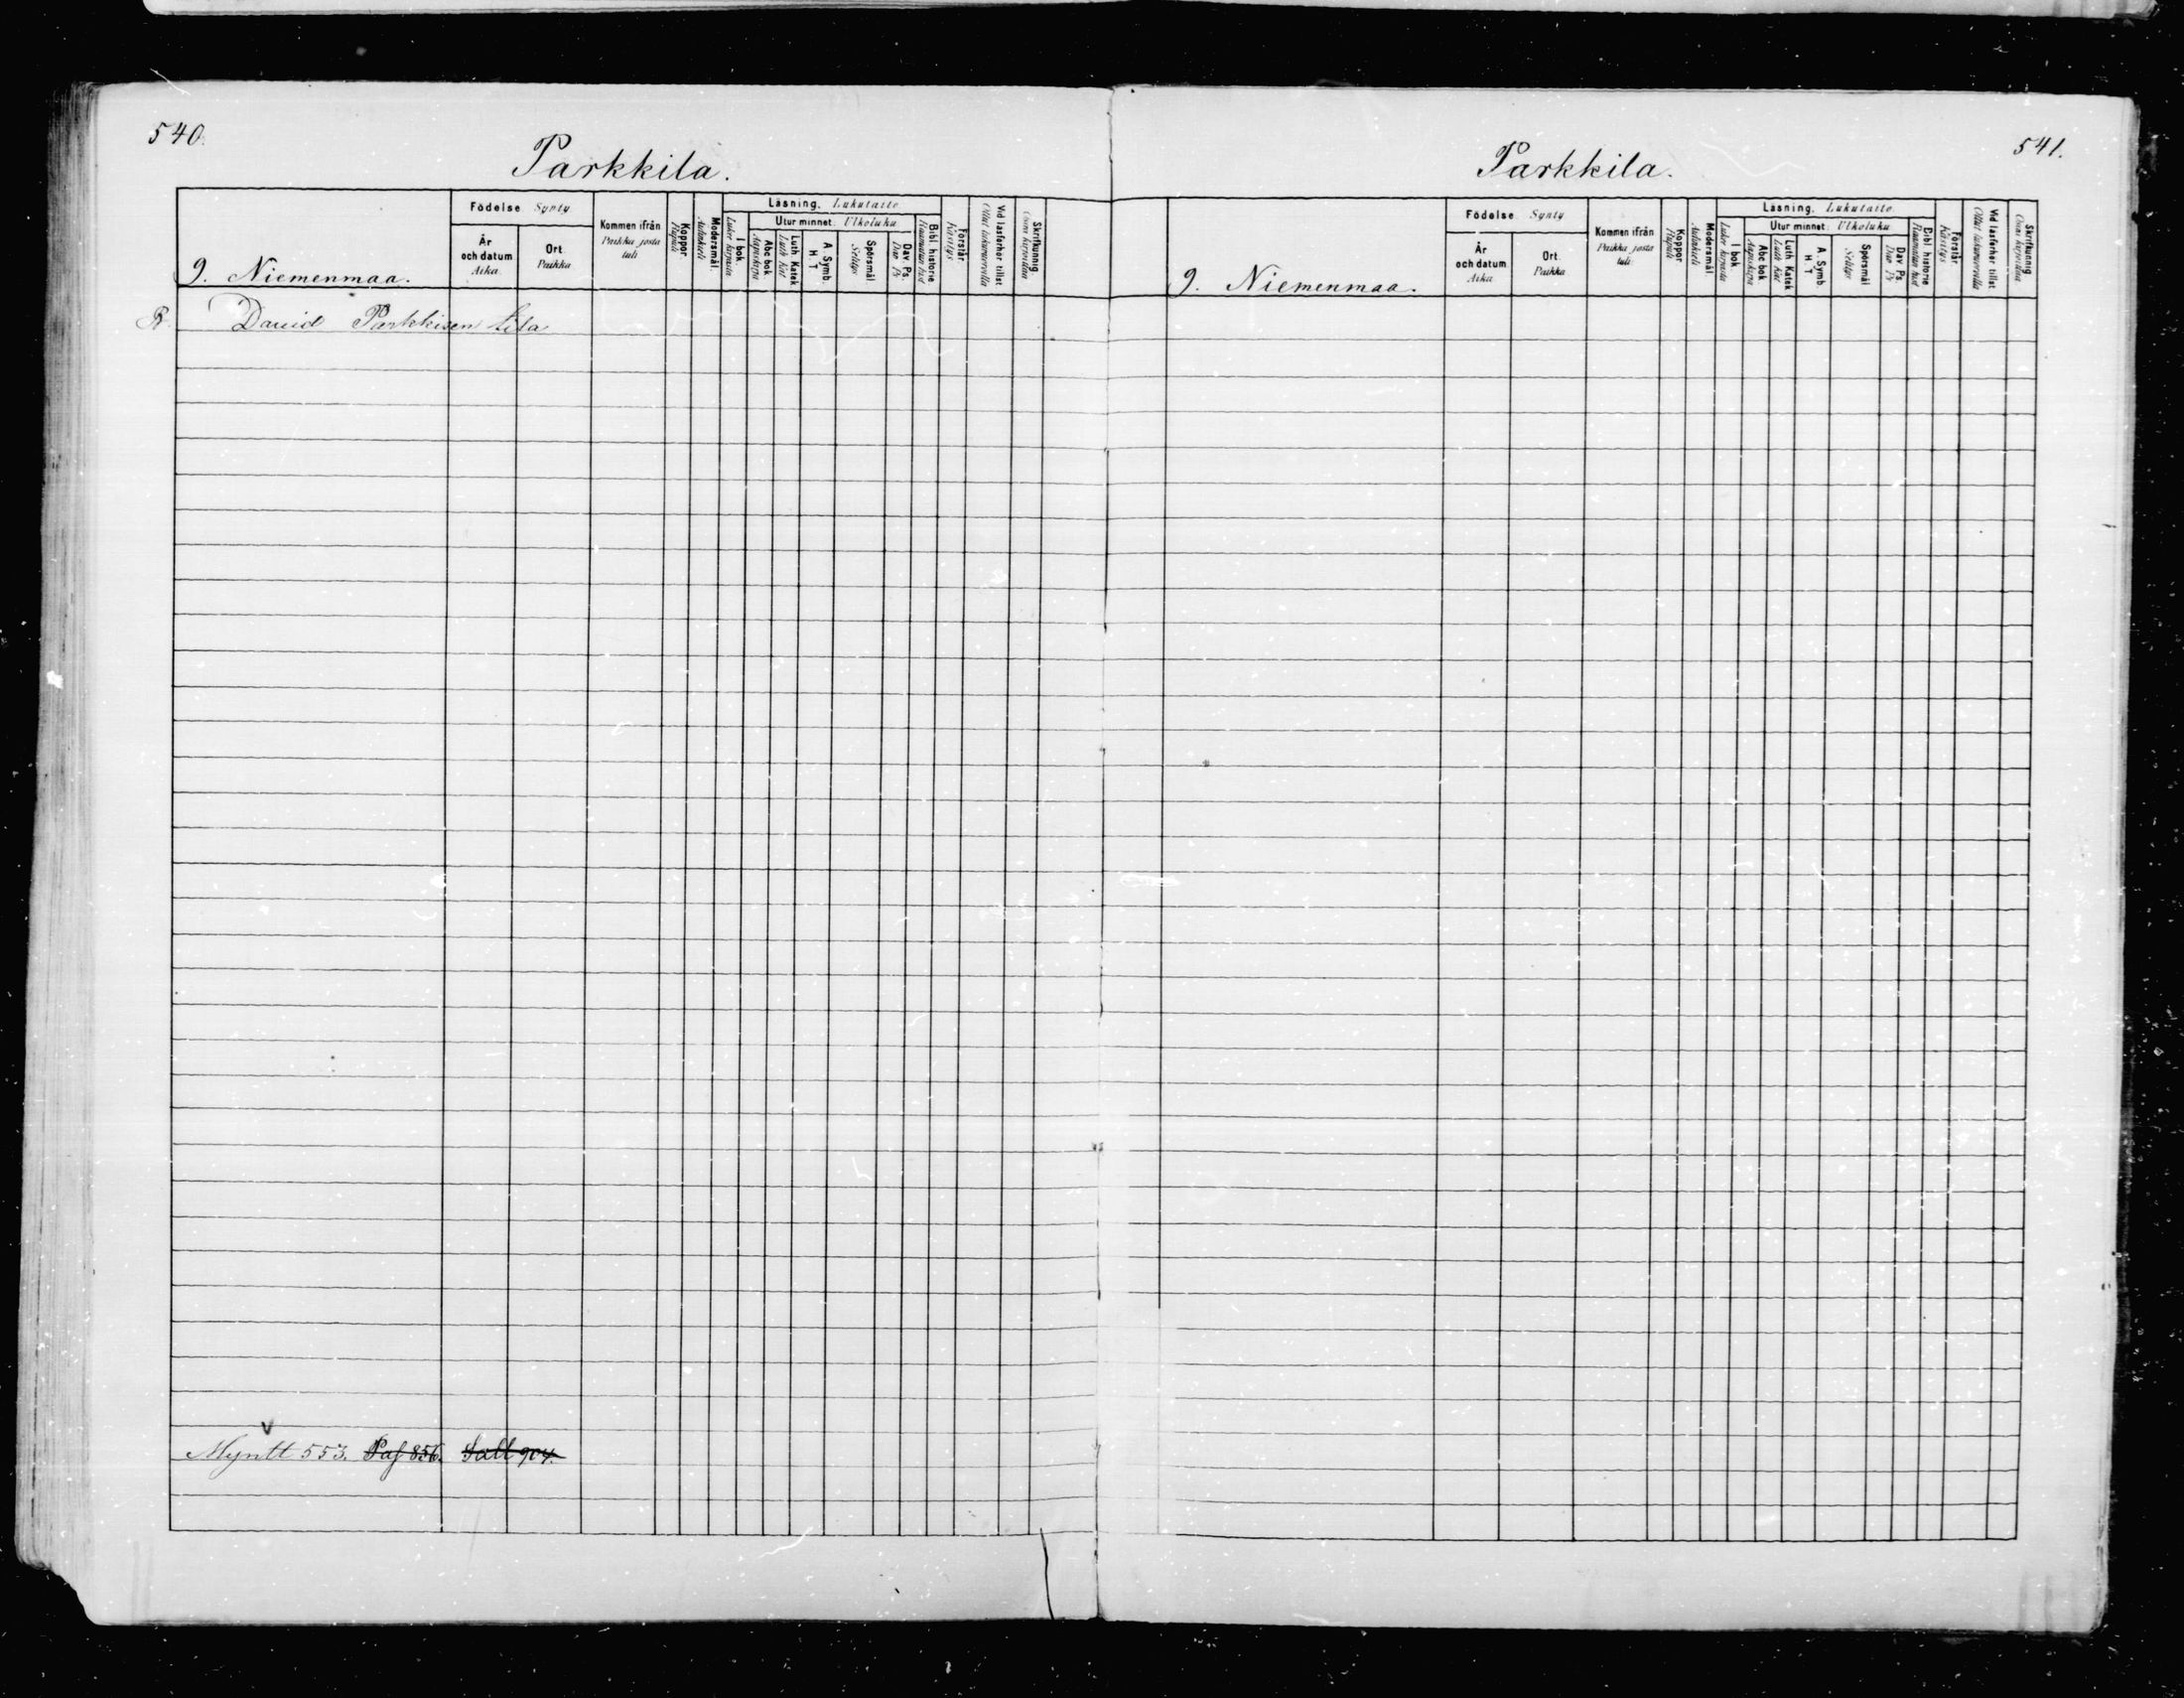 540.
Parkkila.
9. Niemenmaa.
Födelse Synty
År och datum Aika.
Ort Paikka
Kommen ifrån Paikka josta tuli
Koppor. Rupuli
Modersmål. Äidinkieli
Läsning. Lukutaito
I bok. Lukee kirjasta
Utur minnet. Ulkoluku
Abc bok. Aapiskirja
Luth. Katek Luth. Kat
A. Symb. H. T
Spörsmål Selitys
Dav. Ps. Dav. Ps
Bibl. historie Raamatun hist
Förstår Käsitys
Vid läsförhör tillst Ollut lukuvuorolla
Skrifkunnig Osaa kirjoittaa
R. David Parkkisen tila
Myntt 553. Paf 856. Sall 904.
541.
Parkkila.
9. Niemenmaa.
Födelse Synty
År och datum Aika
Ort Paikka
Kommen ifrån Paikka josta tuli
Koppor Rupuli
Modersmål Äidinkieli
Läsning. Lukutaito
I bok Lukee kirjasta
Utur minnet. Ulkoluku
Abc bok. Aapiskirja
Luth. Katek Luth. Kat
A. Symb H. T
Spörsmål Selitys
Dav. Ps. Dav. Ps
Bibl. historie Raamatun hist
Förstår Käsitys
Vid läsförhör tillst
Skrifkunnig Osaa kirjoittaa